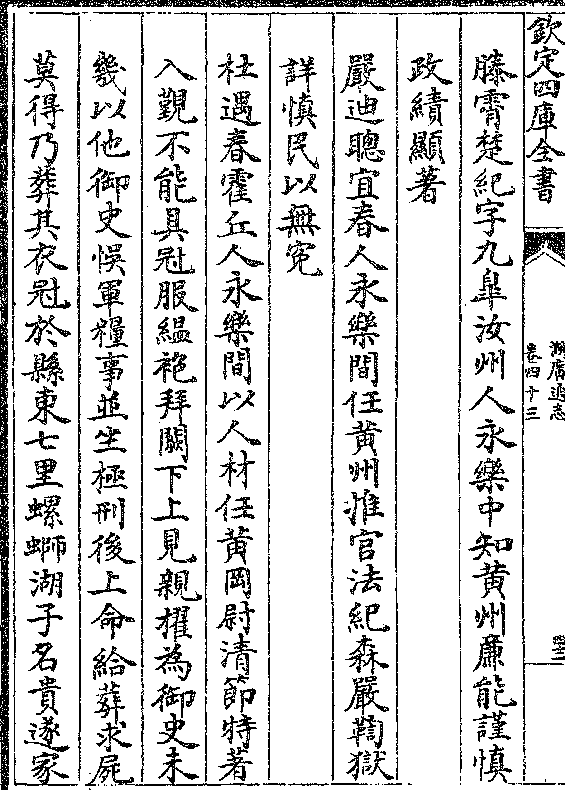 欽定四庫全書
湖廣通志
卷四十三
滕霄楚紀字九臯汝州人永樂中知黄州廉能謹慎
政績顯著
嚴迪聰宜春人永樂間任黄州推官法紀森嚴鞫獄
詳慎民以無寃
杜遇春霍丘人永樂間以人材任黄岡尉清節特著
入覲不能具冠服緼袍拜闕下上見親擢為御史未
幾以他御史悞軍糧事並坐極刑後上命給葬求屍
莫得乃葬其衣冠於縣東七里螺螄湖子名貴遂家